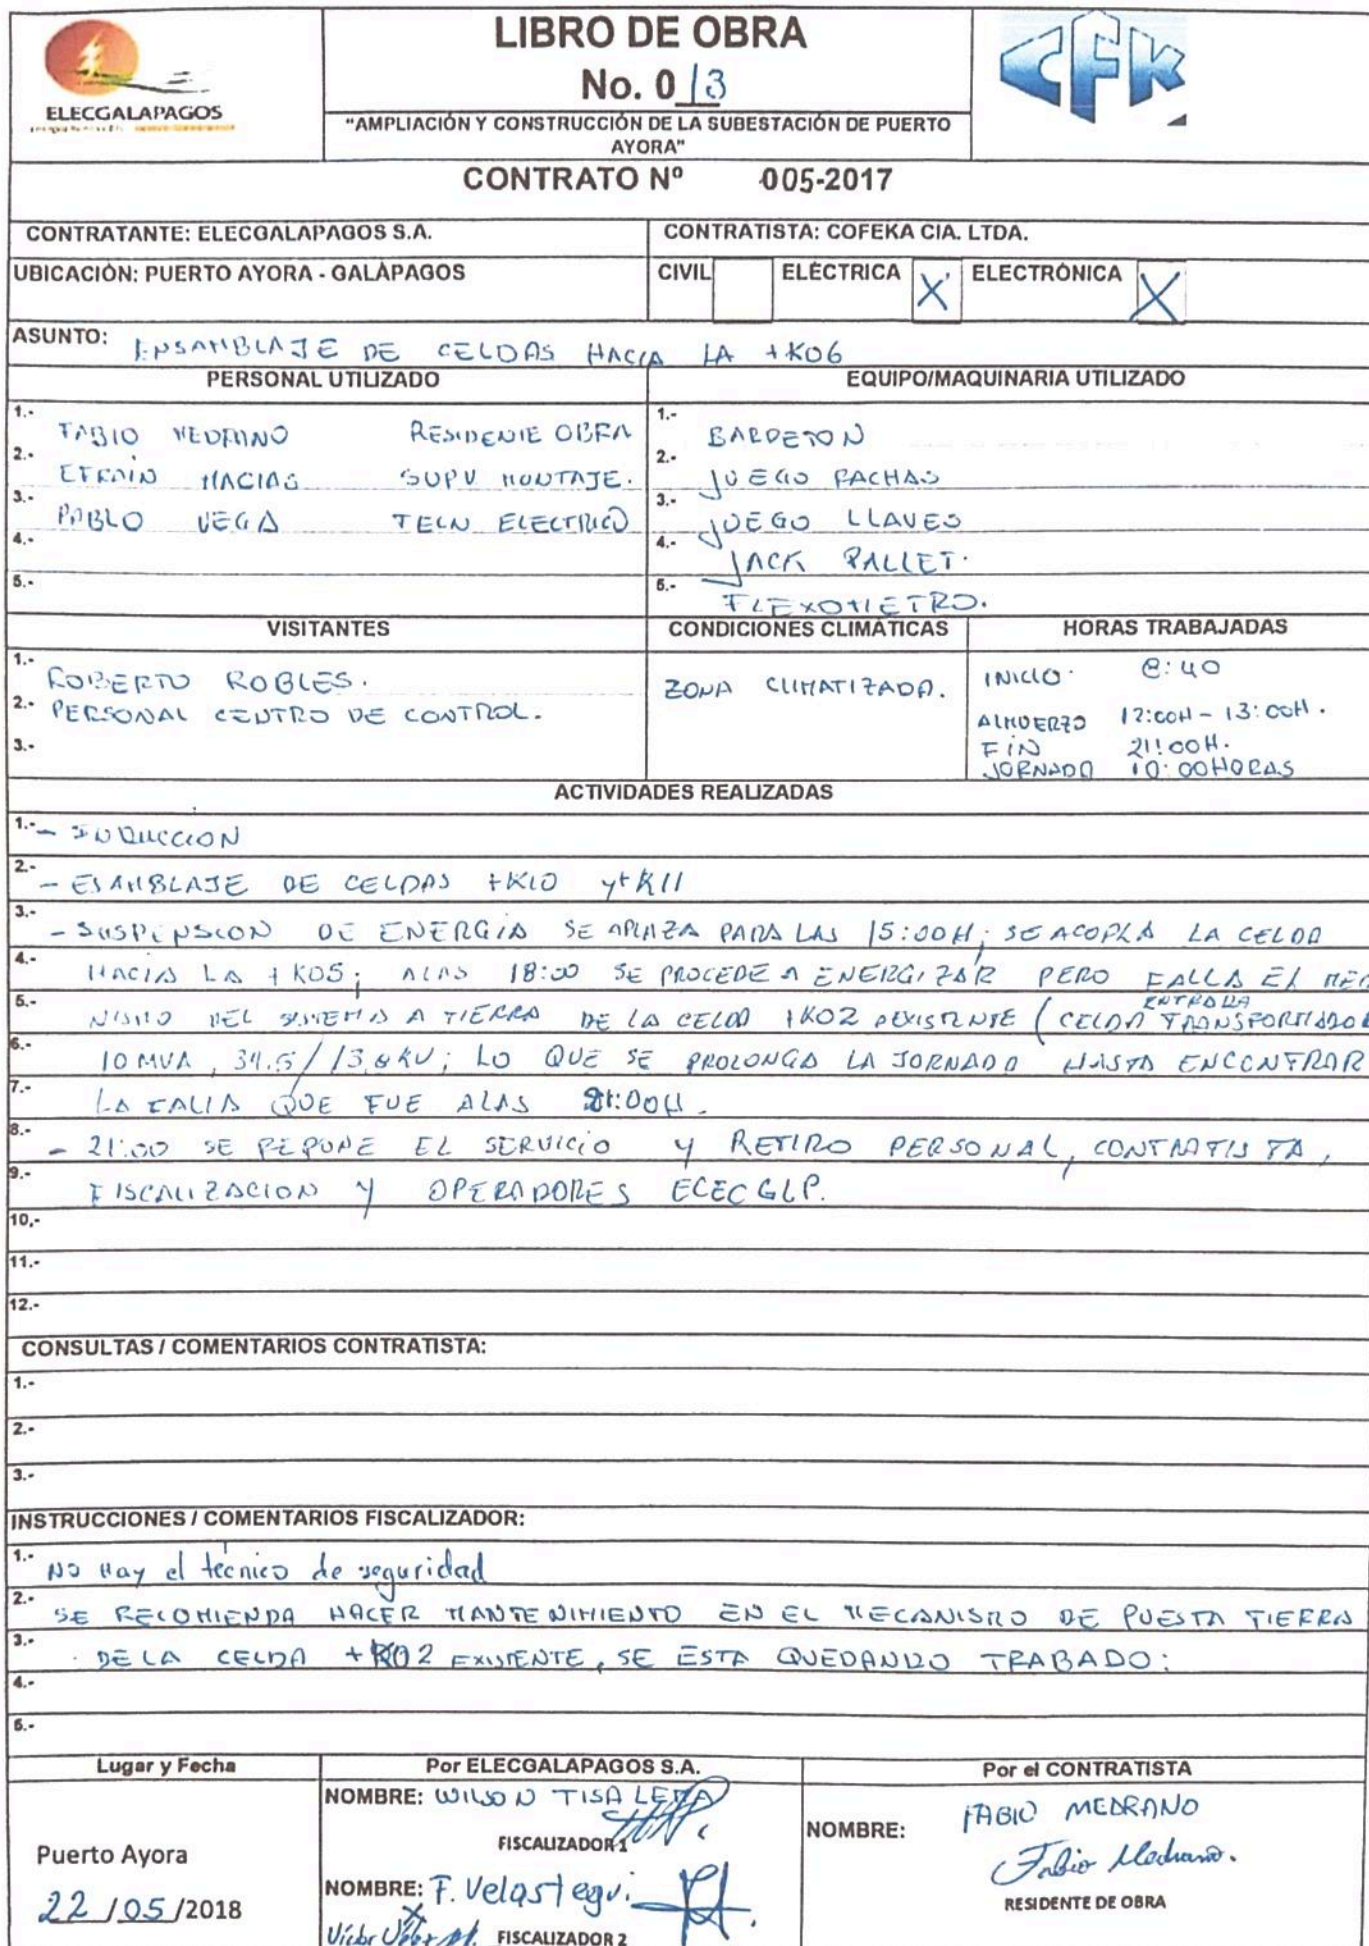 LIBRO DE OBRA
No. 013
ELECGALAPAGOS
CFK
"AMPLIACIÓN Y CONSTRUCCIÓN DE LA SUBESTACIÓN DE PUERTO
AYORA"
CONTRATO Nº 005-2017
CONTRATANTE: ELECGALAPAGOS S.A. CONTRATISTA: COFEKA CIA. LTDA.
UBICACIÓN: PUERTO AYORA - GALÁPAGOS CIVIL ELÉCTRICA X ELECTRÓNICA X
ASUNTO: ENSAMBLAJE DE CELDAS HACIA LA +K06
PERSONAL UTILIZADO EQUIPO/MAQUINARIA UTILIZADO
1.- FABIO MEDRANO RESIDENTE OBRA
2.- EFRAIN MACIAS SUPV MONTAJE.
3.- PABLO VEGA TECN ELECTRICO
4.-
5.-
1.- BARRETON
2.- JUEGO RACHAS
3.- JUEGO LLAVES
4.- JACK PALLET.
5.- FLEXOMETRO.
VISITANTES CONDICIONES CLIMÁTICAS HORAS TRABAJADAS
1.- ROBERTO ROBLES.
2.- PERSONAL CENTRO DE CONTROL.
3.-
ZONA CLIMATIZADA.
INICIO. 8:40
ALMUERZO 12:00H - 13:00H.
FIN 21:00H.
JORNADA 10:00HORAS
ACTIVIDADES REALIZADAS
1.- - INDUCCION
2.- - ESAMBLAJE DE CELDAS +K10 y +K11
3.- - SUSPENSION DE ENERGIA SE APLAZA PARA LAS 15:00H; SE ACOPLA LA CELDA
4.- HACIA LA +K05; A LAS 18:00 SE PROCEDE A ENERGIZAR PERO FALLA EL MECA
5.- NISMO DEL SISTEMA A TIERRA DE LA CELDA +K02 EXISTENTE (CELDA ENTRADA TRANSFORMADOR
6.- 10 MVA, 34.5/13.8KV; LO QUE SE PROLONGA LA JORNADA HASTA ENCONTRAR
7.- LA FALLA QUE FUE A LAS 21:00H.
8.- - 21:00 SE REPONE EL SERVICIO Y RETIRO PERSONAL, CONTRATISTA,
9.- FISCALIZACION Y OPERADORES ECECGLP.
10.-
11.-
12.-
CONSULTAS / COMENTARIOS CONTRATISTA:
1.-
2.-
3.-
INSTRUCCIONES / COMENTARIOS FISCALIZADOR:
1.- No Hay el técnico de seguridad
2.- SE RECOMIENDA HACER MANTENIMIENTO EN EL MECANISMO DE PUESTA TIERRA
3.- DE LA CELDA +K02 EXISTENTE, SE ESTA QUEDANDO TRABADO:
4.-
5.-
Lugar y Fecha Por ELECGALAPAGOS S.A. Por el CONTRATISTA
NOMBRE: WILSON TISALEMA
FISCALIZADOR 1
NOMBRE: F. Velastegui
Víctor
FISCALIZADOR 2
Puerto Ayora
22/05/2018
NOMBRE: FABIO MEDRANO
Fabio Medrano.
RESIDENTE DE OBRA